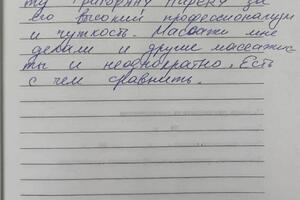 ту Григоряну Нареку за
его высокий профессионализм
и чуткость. Массажи мне
делали и другие массажис
ты и неоднократно. Есть
с чем сравнить.